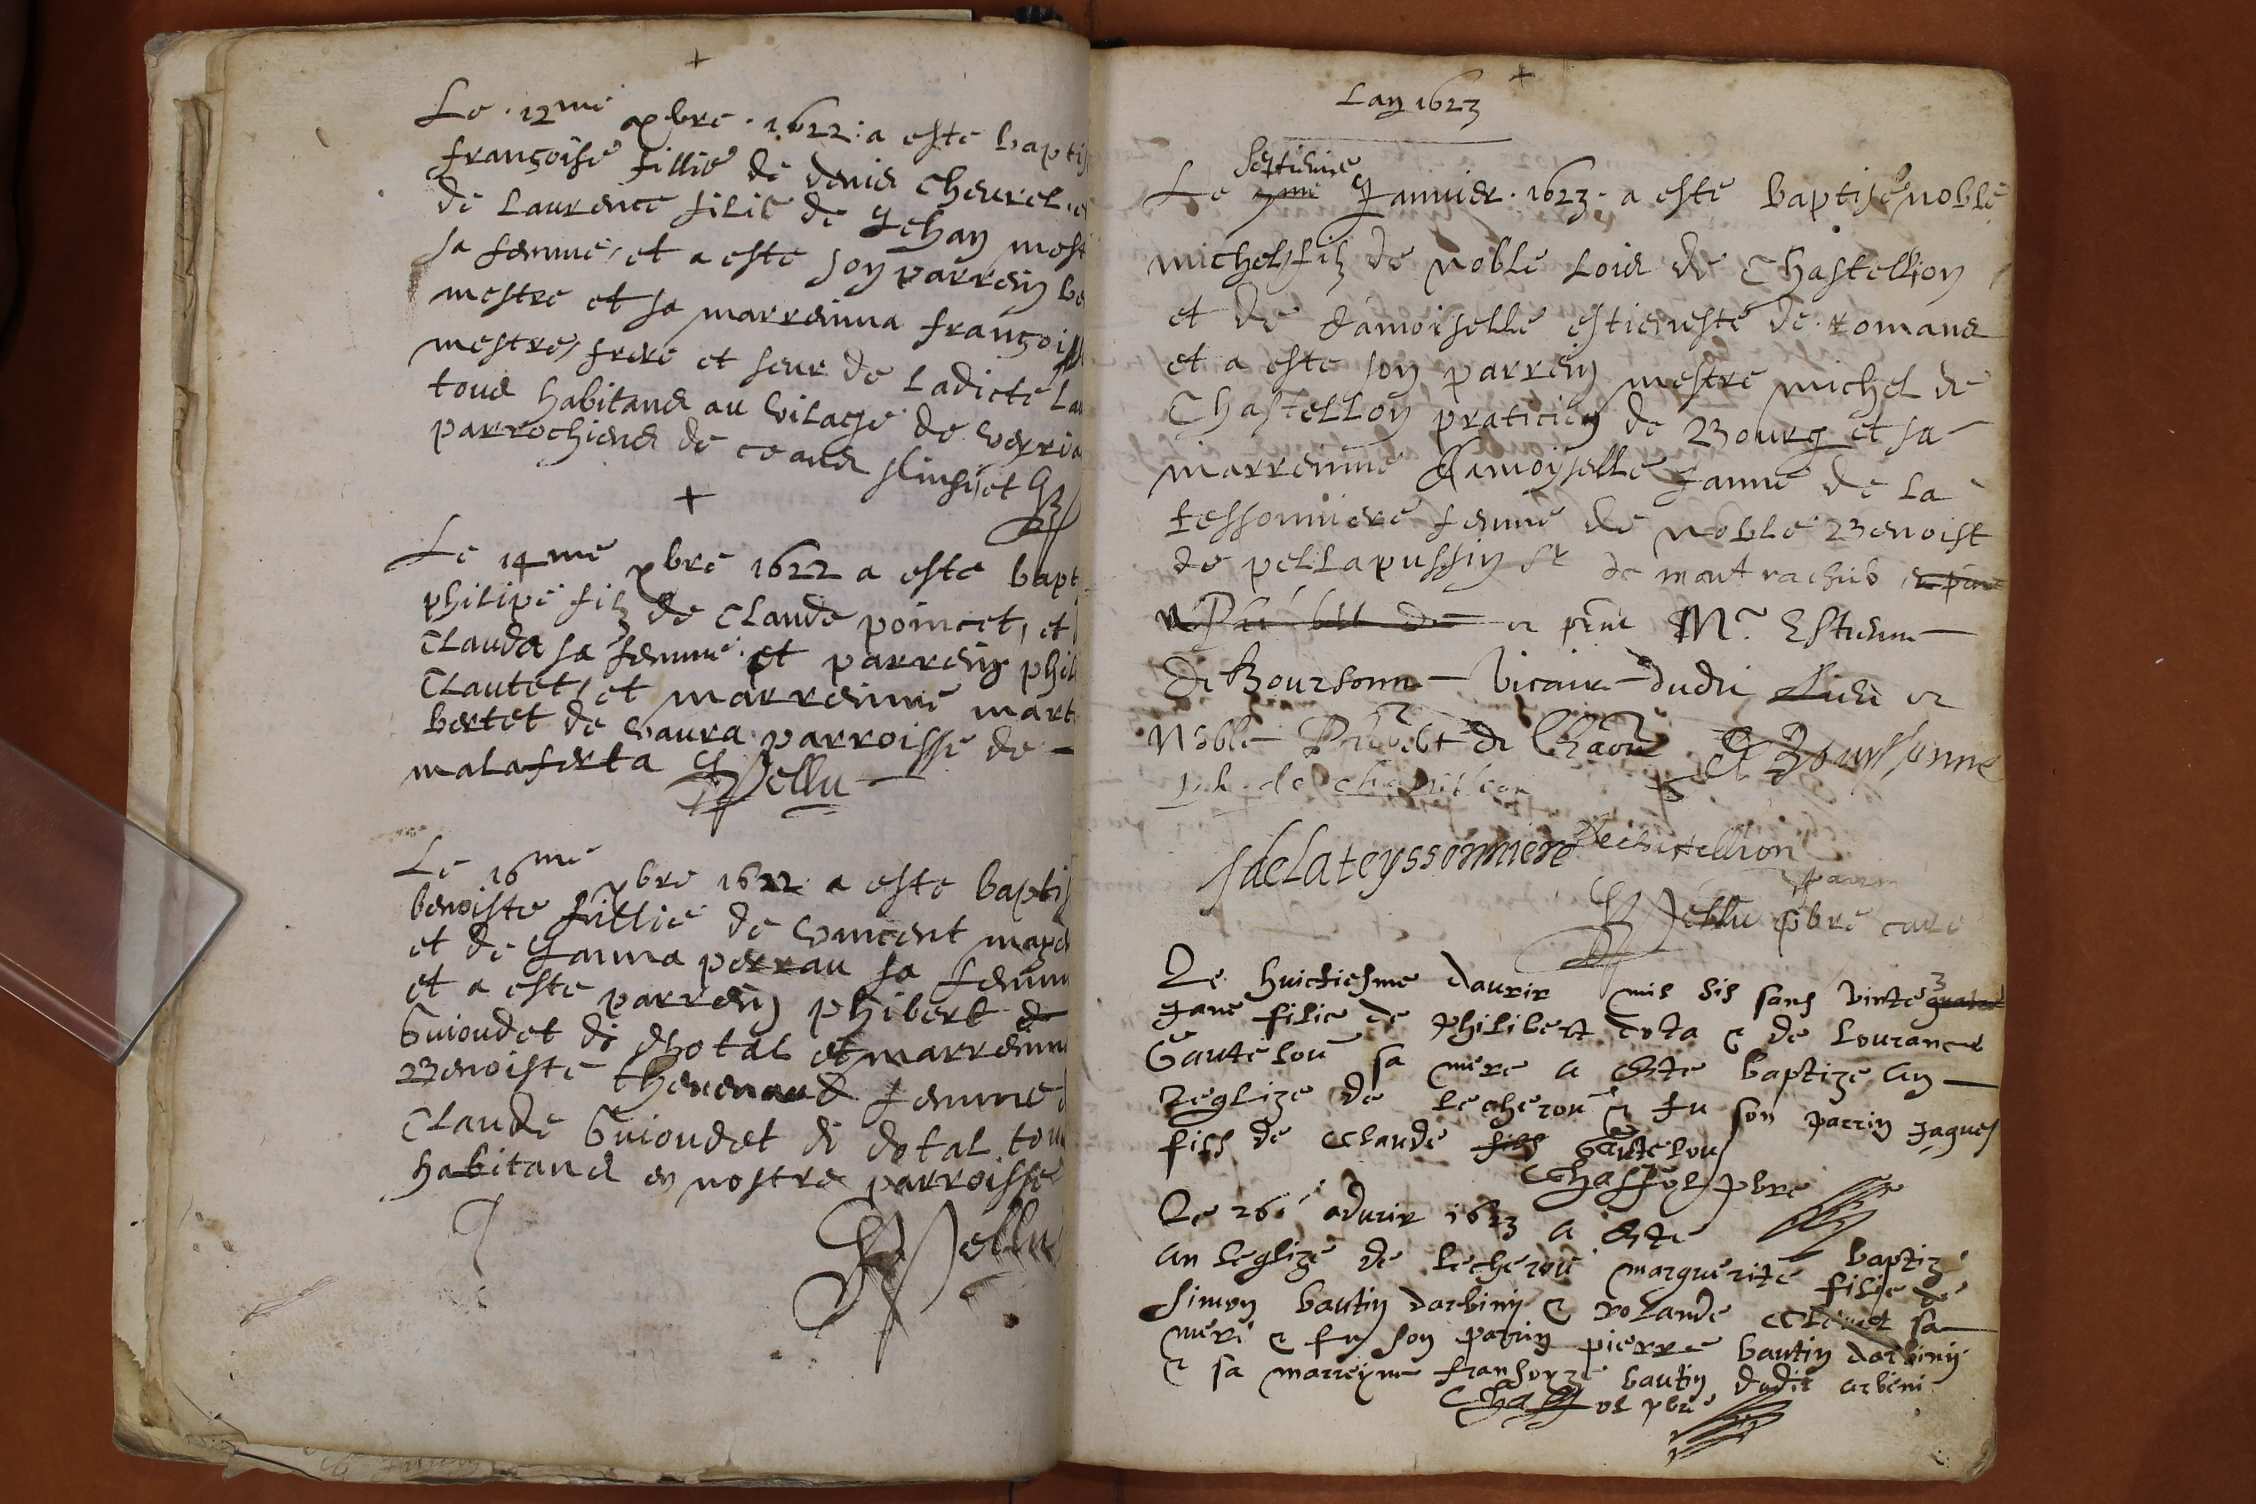 Le 12me xbre 1622 a este bapti
françoise fillie de denis Chevrel et
de Laurence filie de Jehan mest
sa femme, et a este son parrein be
mestre et sa marrenina françoise
mestre, frere et seur de Ladicte Lau
tous habitans au vilage de verria
parrochiens de ceans
Le 14me xbre 1622 a este bapt
philipe filz de Claude poincet, et
Clauda sa femme et parrein phili
Clautet, et marreinne mart
bertet de vaura parroisse de
malaferta
Pellu
Le 16me xbre 1622 a este baptis
benoiste fillie de vincent
et de Janna perrau sa femm
et a este parrein phibert de
Guioudet di dhotal et marreinne
Benoiste thevenaud femme
Claude Guioudet di dotal tou
habitans en nostre parroisse
Pellu
Lan 1623
septieme
Le Janvier 1623 a este baptise noble
michel filz de noble Lois de Chastellion
et de damoiselle estienette de Romans
et a este son parrein mestre michel de
Chastellon praticien de Bourg et sa
marreinne damoyselle Janne de la
tessonniere femme de noble Benoist
de pellapussin Sr de
Mr Estienne
de Boursonne vicaire dudit et
Noble de
de Bourssonne
de chastillon
J delateyssonniere
Dechatellion
parin
Pellu pbre cure
Le huictiesme davrir mis sis sans vinte 3
Jane filie de Philibert dota & de Lourance
Gautelou sa mere a este baptize an
leglize de lecherou & fu son parrin Jaques
fils de Claude fils Gautelou
Chaffol pbre
Le 26 advrir 1623 a este baptize
an leglize de lecherou marguerite filie de
Simon bautin darbiny & rolande sa
mere & fu son parrin pierre bautin darbiny
& sa marreyne fransoyze bautin dudit arbeni
Chaffol pbre